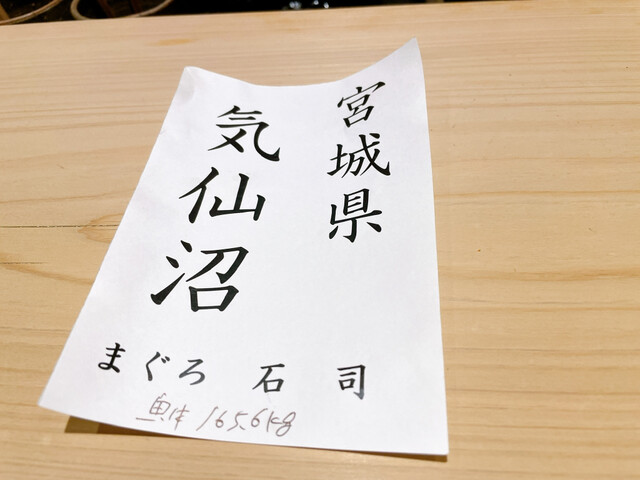 宮城県
気仙沼
まぐろ 石司
魚体 165.6kg